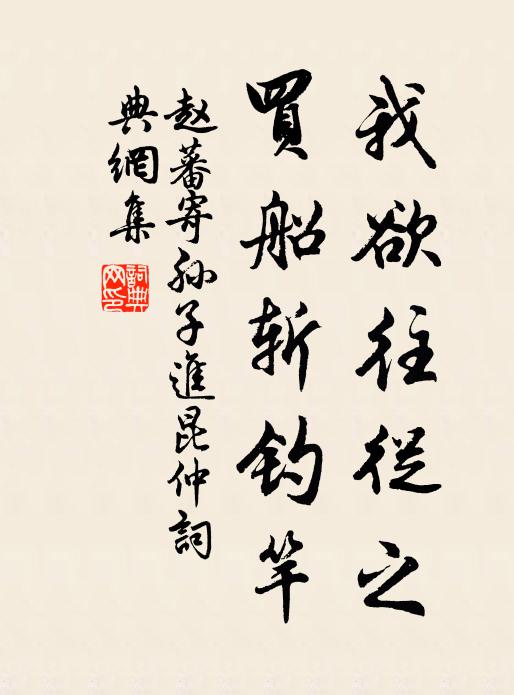 我欲往從之
買船斬釣竿
赵蕃寄孙子進昆仲詞
典網集
詞典网印